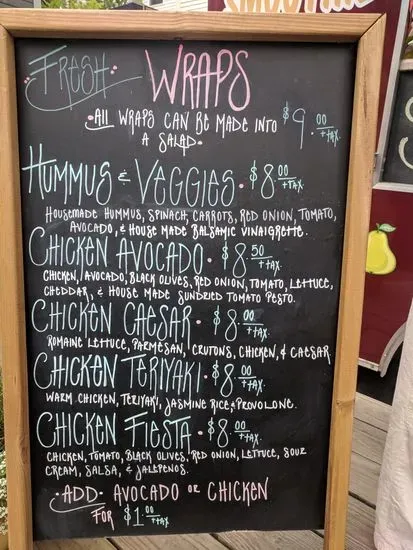 FRESH WRAPS
$9.00 +TAX
All WRAPS CAN BE MADE INTO
A SALAD
HUMMUS & VEGGIES · $8.00 +TAX
HOUSEMADE HUMMUS, SPINACH, CARROTS, RED ONION, TOMATO,
AVOCADO, & HOUSE MADE BALSAMIC VINAIGRETTE.
CHICKEN AVOCADO · $8.50 +TAX
CHICKEN, AVOCADO, BLACK OLIVES, RED ONION, TOMATO, LETTUCE,
CHEDDAR, & HOUSE MADE SUNDRIED TOMATO PESTO.
CHICKEN CAESAR · $8.00 +TAX
ROMAINE LETTUCE, PARMESAN, CRUTONS, CHICKEN, & CAESAR
CHICKEN TERIYAKI · $8.00 +TAX
WARM CHICKEN, TERIYAKI, JASMINE RICE & PROVOLONE.
CHICKEN FIESTA · $8.00 +TAX
CHICKEN, TOMATO, BLACK OLIVES, RED ONION, LETTUCE, SOUR
CREAM, SALSA, & JALEPENOS.
· ADD · AVOCADO OR CHICKEN
FOR $1.00 +TAX